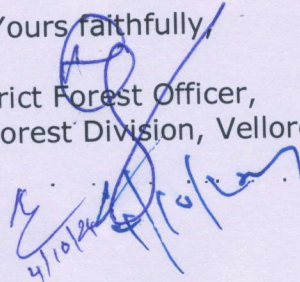 Yours faithfully,
rict Forest Officer,
orest Division, Vellor
4/10/24